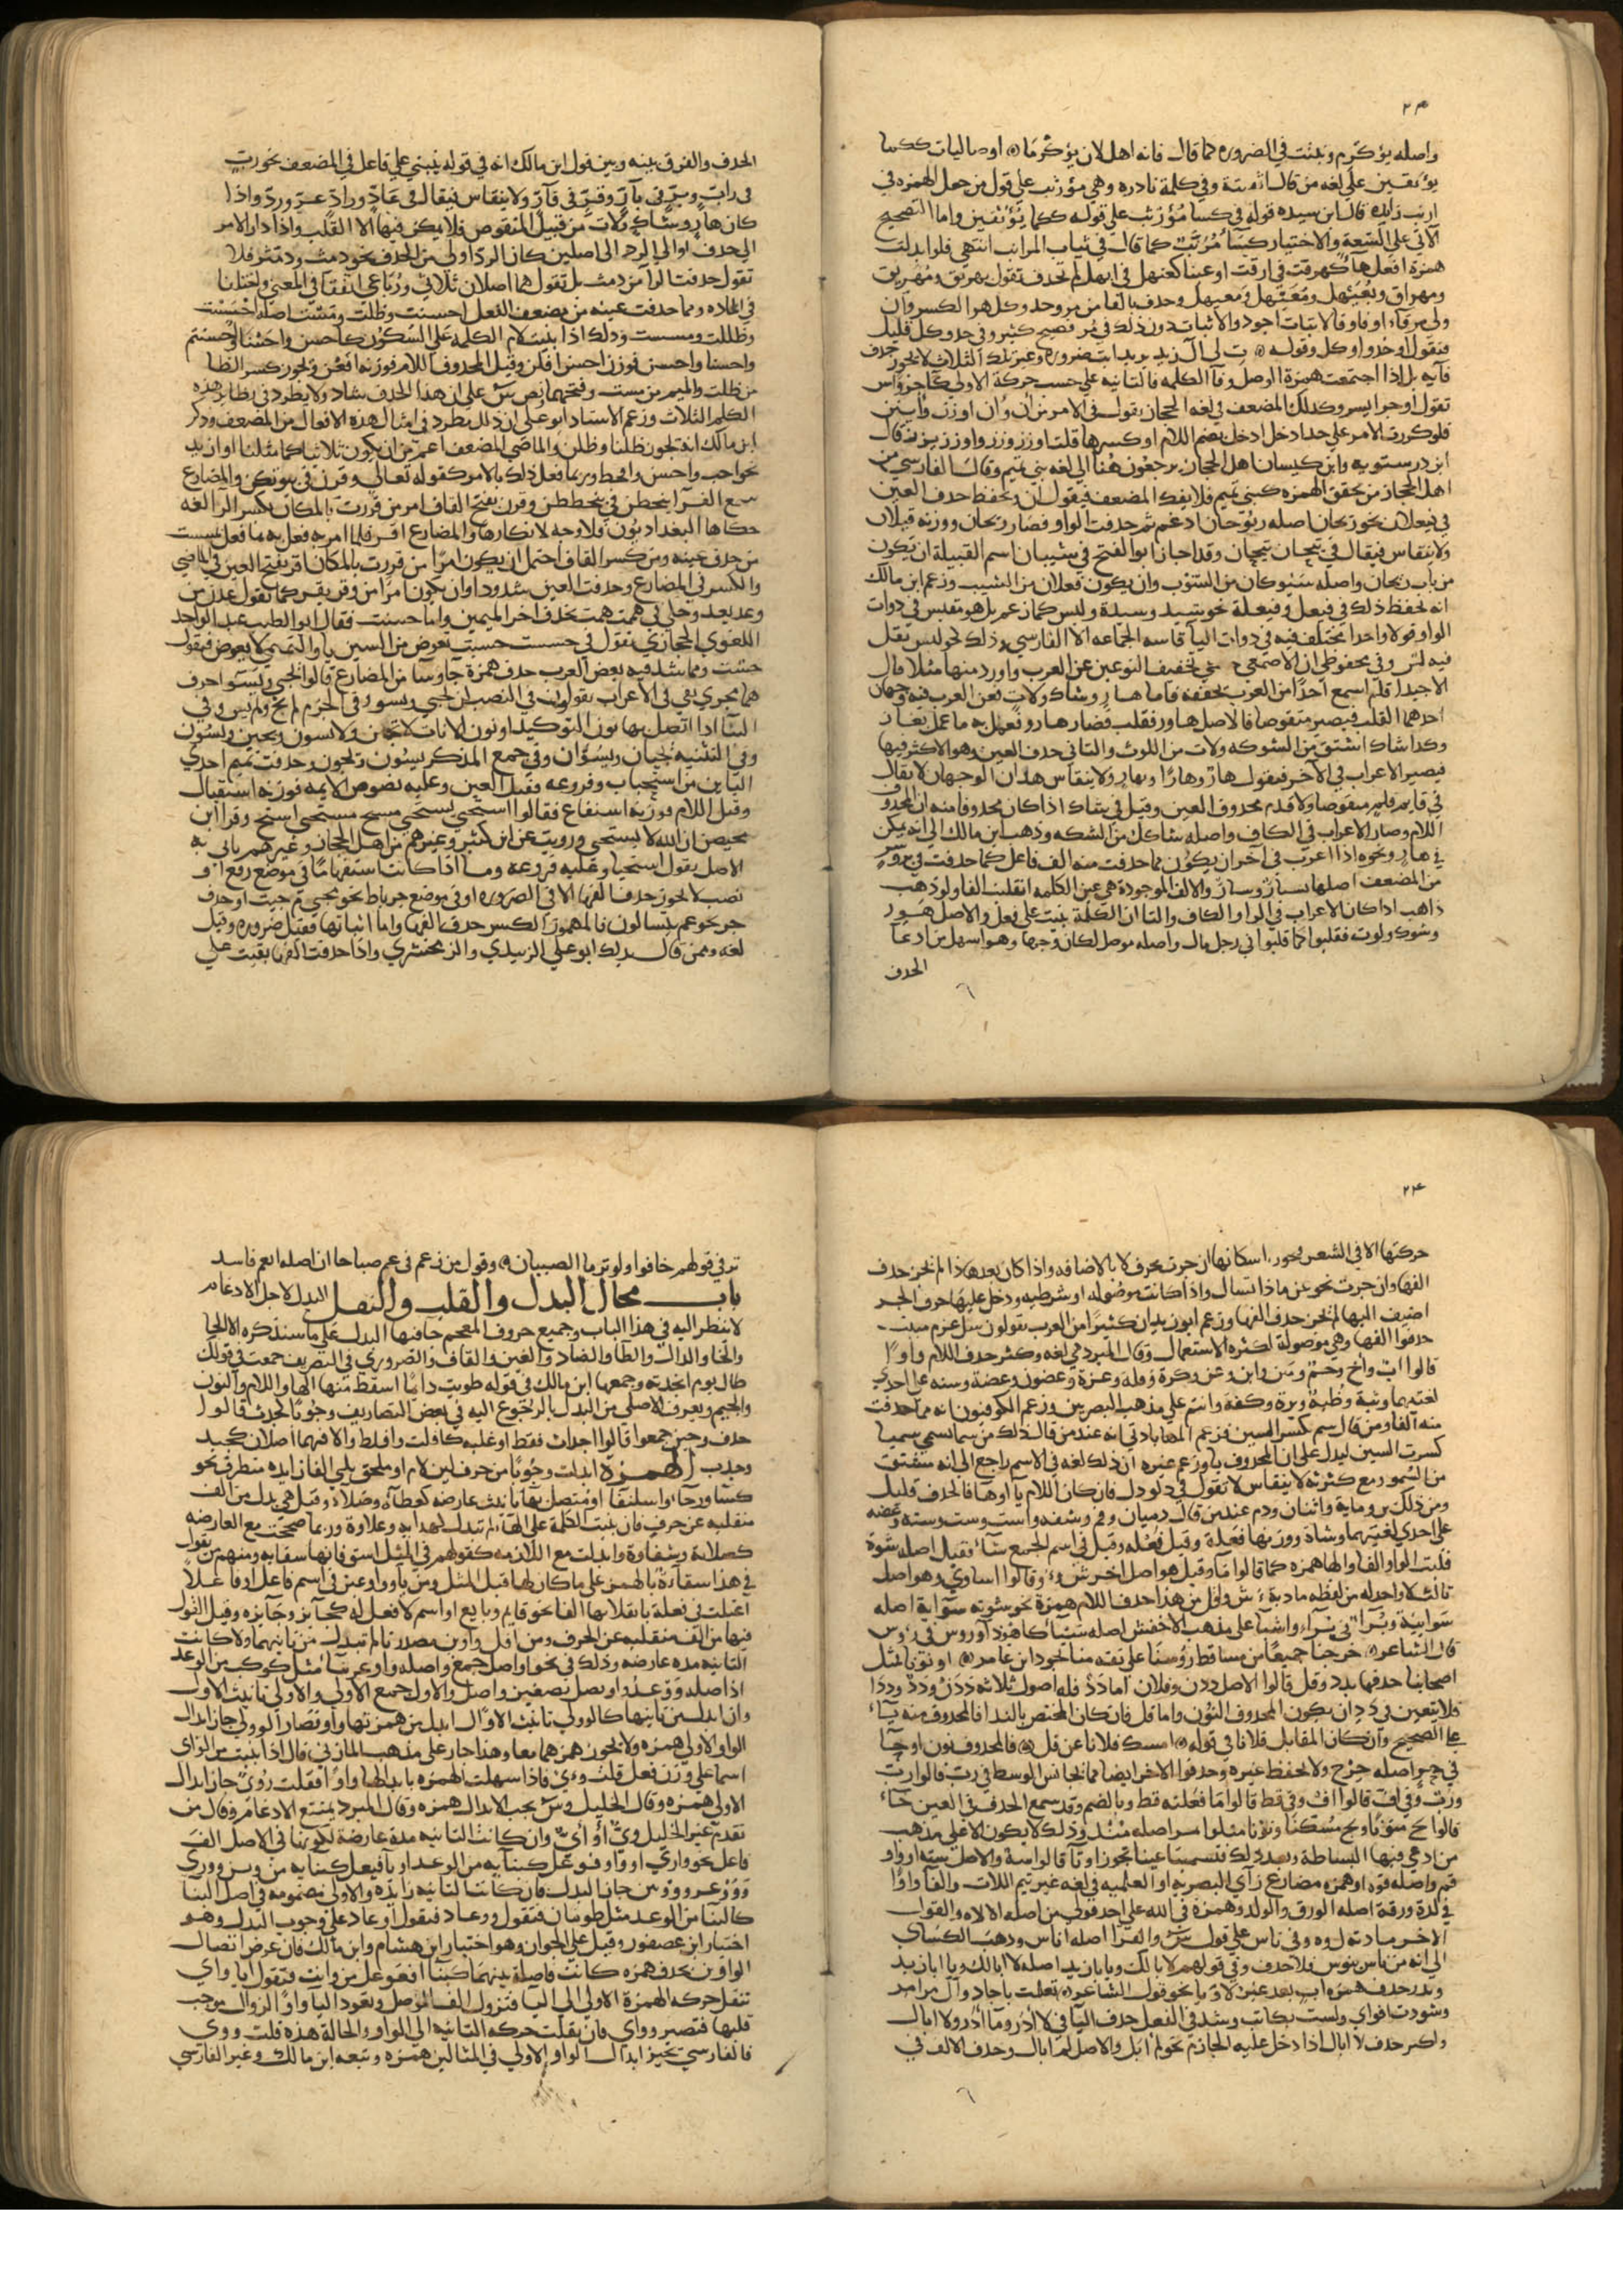 ٢٣
واصله يؤكرم ويثبت في الضرورة كما قال فانه اهل لان يؤكرما او صاليات ككما
يؤثفين علي لغة من قال اثفيته وفي كلمة نادرة وهي مؤرنب علي قول من جعل الهمزة في
ارنب زايدة قال ابن سيده قوله في كسا مؤرنب علي قوله ككما يؤثفين واما الصحيح
الاتي علي السعة والاختيار كسا مرنب كما قال في ثياب المراتب انتهي فلو ابدلت
همزة افعل ها كهرقت في ارقت او عينا كعنهل في انهل لم تحذف تقول يهريق ومهريق
ومهراق ويعيهل ومعيهل وحذف فا من مر وخذ وكل هو الكسر وان
ولي مر فاء او فاو فالاثبات اجود والاثبات دون ذلك في مر فصيح كثير وفي خذ وكل قليل
فتقول اوخذ واوكل وقوله ت لي آل زيد ضرورة وغير تلك الثلاث لا يجوز حذف
فايه بل اذا اجتمعت همزة الوصل وفا الكلمة فالثانية علي حسب حركة الاولي
تقول اوجر ايسر وكذلك المضعف في لغة الحجاز يقول في الامر من ان وان اوزز وايبن
فلو كررت الامر علي حد ادخل ادخل بضم اللام او كسرها قلت اوزز وزز واوزز يزيد قال
ابن درستويه وابن كيسان اهل الحجاز يرجعون هنا الي لغة بني تميم وقال الفارسي من
اهل الحجاز من يحقق الهمزة كبني تميم فلا يفك المضعف فيقول ان ويحفظ حذف العين
في فيعلان نحو ريحان اصله ريوحان ادغم ثم حذفت الواو فصار ريحان ووزنه فيلان
ولا ينقاس فيقال في تيحان تيحان وقد اجاز ابو الفتح في شيبان اسم القبيلة ان يكون
من باب ريحان واصله شيوبان من الشوب وان يكون فعلان من الشيب وزعم ابن مالك
انه يحفظ ذلك في فيعل وفيعلة نحو سيد وسيدة وليس كما زعم بل هو مقيس في ذوات
الواو قولا واحدا مختلف فيه في ذوات اليا قاسه الجماعة الا الفارسي وذلك نحو لين يقل
فيه لين وفي محفوظي ان الاصمعي حكي تخفيف النوعين عن العرب واورد منها مثلا قال
الا جيدا فلم اسمع احدا من العرب يخففه فاما هار وشاك ولاث فعن العرب فيه وجهان
احدهما القلب فيصير منقوصا فالاصل هاور فقلب فصار هارو فعل به ما عمل بغاز
وكذا شاك اشتق من الشوكة ولاث من اللوث والثاني حذف العين وهو الاكثر فيها
فيصير الاعراب في الاخر فيقول هار وهارا وبهار ولا ينقاس هذان الوجهان لا يقال
في قايم قام منقوصا ولا قدم محذوف العين وقيل في شاك اذا كان محذوفا منه ان المحذوف
اللام وصار الاعراب في الكاف واصله شاكك من الشكة وذهب ابن مالك الي انه يمكن
في هار ونحوه اذا اعرب في آخر ان يكون مما حذفت منه الف فاعل كما حذفت في بر وسر
من المضعف اصلها بار وسار والالف الموجودة هي عين الكلمة انقلبت الفا ولو ذهب
ذاهب اذا كان الاعراب في الواو الكاف والثا ان الكلمة بنيت علي فعل والاصل هور
وشوك ولوث فقلبوا كما قلبوا في رجل مال واصله مول لكان وجها وهو اسهل من ادعا
الحذف
الحذف والفرق بينه وبين قول ابن مالك انه في قوله ينبني علي فاعل في المضعف نحو رب
في راب وبر في بار وقر في قار ولا ينقاس فيقال في عاد وراد عد ورد واذا
كان هار وشاك ولاث من قبيل المنقوص فلا يمكن فيها الا القلب واذا دار الامر
الي حذف او الي الرد الي اصلين كان الرد اولي من الحذف نحو دمث ودمثر فلا
تقول حذفت الرا من دمث بل تقول هما اصلان ثلاثي ورباعي اتفقا في المعني واختلفا
في المادة ومما حذفت عينه من مضعف الفعل احسنت وظلت ومست اصله احسست
وظللت ومسست وذلك اذا بنيت لام الكلمة علي السكون كاحسن واحسنا واحسنتم
واحسنا واحسن فوزن احسن افلن وقيل المحذوف اللام فوزنه افعن ويجوز كسر الظا
من ظلت والميم من مست وفتحهما نص س علي ان هذا الحذف شاذ ولا يطرد في نظاير هذه
الكلم الثلاث وزعم الاستاذ ابو علي ان ذلك مطرد في امثال هذه الافعال من المضعف وذكر
ابن مالك انه يجوز ظلنا وظلن والماضي المضعف اعم من ان يكون ثلاثيا كما مثلنا او ازيد
نحو احب واحسن وانحط وربما فعل ذلك بالامر كقوله تعالي وقرن في بيوتكن والمضارع
سمع الفرا ينحطن في ينحططن وقرن بفتح القاف امر من قررت بالمكان بكسر الرا لغة
حكاها البغداديون فلا وجه لانكارها والمضارع اقر فلما امر به فعل به ما فعل بمسست
من حذف عينه ومن كسر القاف احتمل ان يكون امرا من قررت بالمكان اقر بفتح العين في الماضي
والكسر في المضارع وحذفت العين شذوذا وان يكون امرا من وقر يقر كما تقول عدن من
وعد يعد وحكي في همت همت بحذف اخر الميمين واما حسنت فقال ابو الطيب عبد الواحد
اللغوي الحجازي يقول في حسست حسيت يعوض من السين يا والتميمي لا يعوض فيقول
حست ومما شذ فيه بعض العرب حذف همزة جا وسا من المضارع قالوا يجي ويسو احرف
هما مجري يفي في الاعراب يقولون في النصب لن يجي ويسو وفي الجزم لم يج ولم يس وفي
البنا اذا اتصل بها نون التوكيد او نون الاناث لا تجن ولا تسون ويجين ويسون
وفي التثنية يجيان ويسوان وفي جمع المذكر يسون ويجون وحذفت تميم احدي
اليائين من استحياب وفروعه فقيل العين وعليه نصوص الايمة فوزنه استفال
وقيل اللام فوزنه استفاع فقالوا استحي يستحي مستح مستحي استح وقرا ابن
محيصن ان الله لا يستحي ورويت عن ابن كثير وغيرهم من اهل الحجاز وغيرهم ياتي به
الاصل يقول استحيا وعليه فروعه وما اذا كانت استفهاما في موضع رفع او
نصب لا يجوز حذف الفها الا في الضرورة او في موضع جر باضافة نحو مجي م جيت او حرف
جر نحو عم يتسالون فالمشهور الكسر حذف الفها واما اثباتها فقيل ضرورة وقيل
لغة وممن قال بذلك ابو علي الزبيدي والزمخشري واذا حذفت الفها بقيت علي
٢٤
حركتها الا في الشعر نحو اسكانها ان جرت بحرف لا بالاضافة واذا كان بعدها ذا لم يجز حذف
الفها وان جرت نحو عن ماذا تسال واذا كانت موصولة او شرطية ودخل عليها حرف الجر
اضيف اليها لم يجز حذف الفها وزعم ابو زيد ان كثيرا من العرب يقولون سل عم شيت
حذفوا الفها وهي موصولة لكثرة الاستعمال وقال المبرد هي لغة وكثر حذف اللام واوا
قالوا اب واخ وحم وهن وابن وعن وكرة وقلة وعزة وعضون وعضة وسنة علي احدي
لغتيهما وثبة وظبة وبرة وكفة واست علي مذهب البصريين وزعم الكوفيون انه مما حذفت
منه الفا ومن قال سم كسر السين فزعم المهاباذي انه عند من قال ذلك من سما يسمي سميا
كسرت السين ليدل علي ان المحذوف يا وزعم غيره ان ذلك لغة في الاسم راجع الي انه مشتق
من السمو ومع كثرته لا ينقاس لا تقول في دلو دل فان كان اللام يا او ها فالحذف قليل
ومن ذلك يد وماية واثنان ودم عند من قال دميان وفم وشفة واست وست وسته وعضه
علي احدي لغتيهما وشاة ووزنها فعلة وقيل فعلة وقيل في اسم الجمع شاء فقيل اصله شوه
قلبت الواو الفا والها همزة كما قالوا ماء وقيل هو اصل اخر شوي وقالوا اشاوي وهو اصل
ثالث لا واحد له من لفظه مادته ش و ا وقل من هذا حذف اللام همزة نحو سوته سواية اصله
سوايية وبراء في براء واشيا علي مذهب الاخفش اصله اشيياء كاهوناء وروس في رؤوس
قال الشاعر خرجنا جميعا من مساقط روسنا علي ثقة منا بجود ابن عامر او نونا مثل
اصحابنا حذفها بدد وقل قالوا الاصل ددن وفلان اما دد فله اصول ثلاثة ددن وددو وددا
فلا يتعين في دد ان يكون المحذوف النون واما فل فان كان المختص بالندا فالمحذوف منه ياء
علي الصحيح وان كان المقابل فلانا في قوله امسك فلانا عن فل فالمحذوف نون او حا
في حر اصله حرح ولا يحفظ غيره وحذفوا الاخر ايضا مما يجانس الوسط في رب قالوا رب
ورب وفي اف قالوا اف وفي قط قالوا ما فعلته قط وبالضم وقد سمع الحذف في العين حا
قالوا بخ منونا وبخ مسكنا ومونا مثلوا مر اصله مند وذلك لا يكون الا علي مذهب
من ادعي فيها البساطة وبعد ذلك فتسميتها عينا تجوز او تا قالوا سه والاصل سته او واو
فم واصله فوه او همزة مضارع راي البصرية او العلمية في لغة غير تيم اللات والفا واوا
في لدة ورقة اصله الورق والولد وهمزة في الله علي احد قولي س اصله الالاه والقول
الاخر مادته ل وه وفي ناس علي قول س والفرا اصله اناس وذهب الكسائي
الي انه من ناس ينوس فلا حذف وفي قولهم لا بالك ويا با زيد اصله لا ابالك ويا ابا زيد
وندر حذف همزة اب بعد غير لا ويا نحو قول الشاعر تعلمت باجاد وال مرامر
وسودت اثوابي ولست بكاتب وشذ في الفعل حذف اليا في لا ادر وما ادر ولا ابال
وكثر حذف لا ابال اذا دخل عليه الجازم نحو لم ابل والاصل لم ابال وحذف الالف في
تر في قولهم خافوا ولو تر ما الصبيان وقول من زعم في عم صباحا ان اصله انعم فاسد
باب محال البدل والقلب والنقل البدل لاجل الادغام
لا ينظر اليه في هذا الباب وجميع حروف المعجم جا فيها البدل علي ما سنذكره الا الحا
والخا والذال والظا والضاد والغين والقاف والضروري في التصريف جمعت في قولك
طال يوم انجدته وجمعها ابن مالك في قوله طويت دايما اسقط منها الها واللام والنون
والجيم ويعرف الاصلي من البدل بالرجوع اليه في بعض التصاريف وجوبا كجدث قالوا
جدف وحين جمعوا قالوا اجداث فقط او غلبة كافلت وافلط والا فهما اصلان كجبذ
وجذب الهمزة ابدلت وجوبا من حرف لين لام او ملحق يلي الفا زايدة متطرف نحو
كساء ورداء واسلنقاء او متصل بها تانيث عارضة كعطاءة وصلاءة وقيل هي بدل من الف
منقلبة عن حرف فان بنيت الكلمة علي الهاء لم تبدل كهداية وعلاوة وربما صححت مع العارضة
كصلاية وشقاوة وابدلت مع اللازمة كقولهم في المثل اسق فانها سقاية ومنهم من يقول
في هذا سقاءة بالهمز علي ما كان لها قبل المثل ومن ياء وواو عين في اسم فاعل او فاعلا
اعتلت في فعله بانقلابها الفا نحو قايم وبايع او اسم لا فعل له كحايز وجايزة وقيل القول
فيها من الف منقلبة عن الحرف ومن اول واوين مصدرتا لم تبدل من ثانيهما ولا كانت
الثانية مدة عارضة وذلك في نحو اواصل جمع واصله وواصل مثل كوكب من الوعد
اذ اصله ووعد واويصل تصغير واصل والاول جمع الاولي والاولي تانيث الاول
وان ابدلت من ثانيها كالوولي تانيث الاوال ابدل من همزتها واو فصار الوولي جاز ابدال
الواو الاولي همزة ولا يجوز همزهما معا وهذا جار علي مذهب المازني قال اذا بنيت من الراي
اسما علي وزن فعل قلت وءي فاذا سهلت الهمزة بابدالها واوا فقلت ووي جاز ابدال
الاولي همزة وقال الخليل وس يجب الابدال همزة وقال المبرد يمتنع الادغام وقال من
تقدم غير الخليل وي او اي وان كانت الثانية مدة عارضة لكونها في الاصل الف
فاعل نحو ووري او واو فوعل كبنايه من الوعد او يا فيعل كبنايه من وبس ووري
ووزعد ووبس جاز البدل فان كانت الثانية زايدة والاولي مضمومة في اصل البنا
كالبنا من الوعد مثل طومار فتقول ووعاد فتقول اوعاد علي وجوب البدل وهو
اختيار ابن عصفور وقيل علي الجواز وهو اختيار ابن هشام وابن مالك فان عرض اتصال
الواوين بحذف همزة كانت فاصلة بينهما كبنا افعوعل من وايت فتقول اياواي
تنقل حركة الهمزة الاولي الي اليا فتزول الف الوصل وتعود اليا واوا لزوال موجب
قلبها فتصير وواي فان نقلت حركة الثانية الي الواو والحالة هذه قلت ووي
فالفارسي يجيز ابدال الواو الاولي في المثالين همزة وتبعه ابن مالك وغير الفارسي